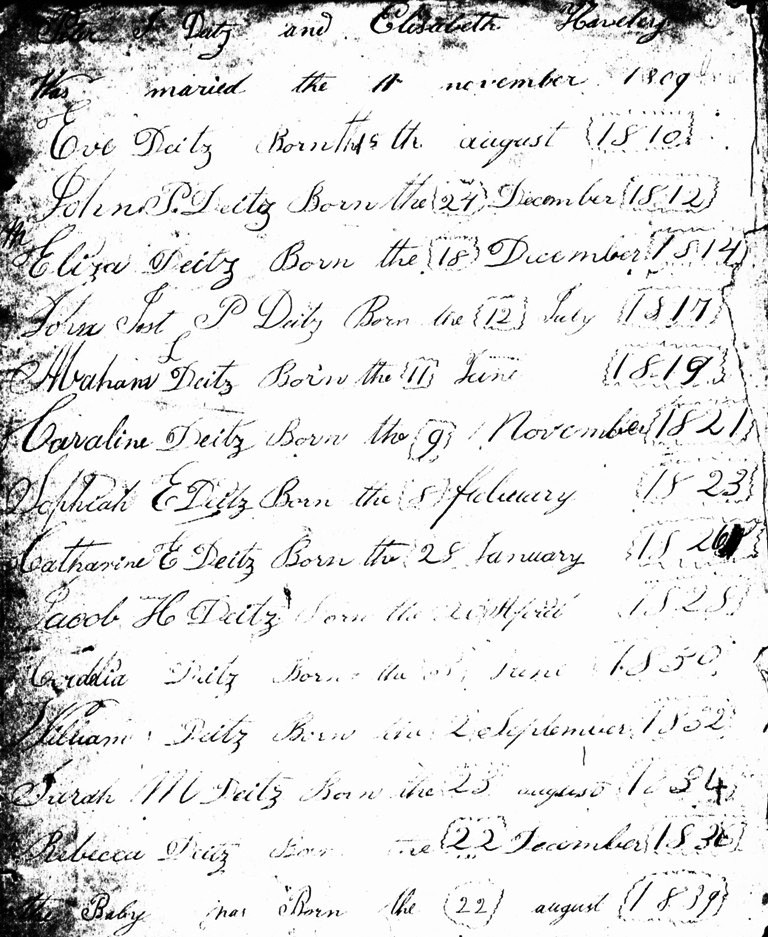 J. Deitz and Elisabeth
Was maried the 11 november 1809
Eve Deitz Born the 15 th august 1810
John P. Deitz Born the 24 December 1812
Eliza Deitz Born the 18 December 1814
John Jost P Deitz Born the 12 July 1817
Abraham L Deitz Born the 11 June 1819
Caraline Deitz Born the 9 November 1821
Sophiah E Deitz Born the 8 february 1823
Catharine E Deitz Born the 28 January 1826
Jacob H Deitz Born the April 1828
Deitz Born the June 1830
William Deitz Born the 2 September 1832
Sarah M Deitz Born the 23 august 1834
Rebecca Deitz Born the 22 December 1836
the Baby was Born the 22 august 1839